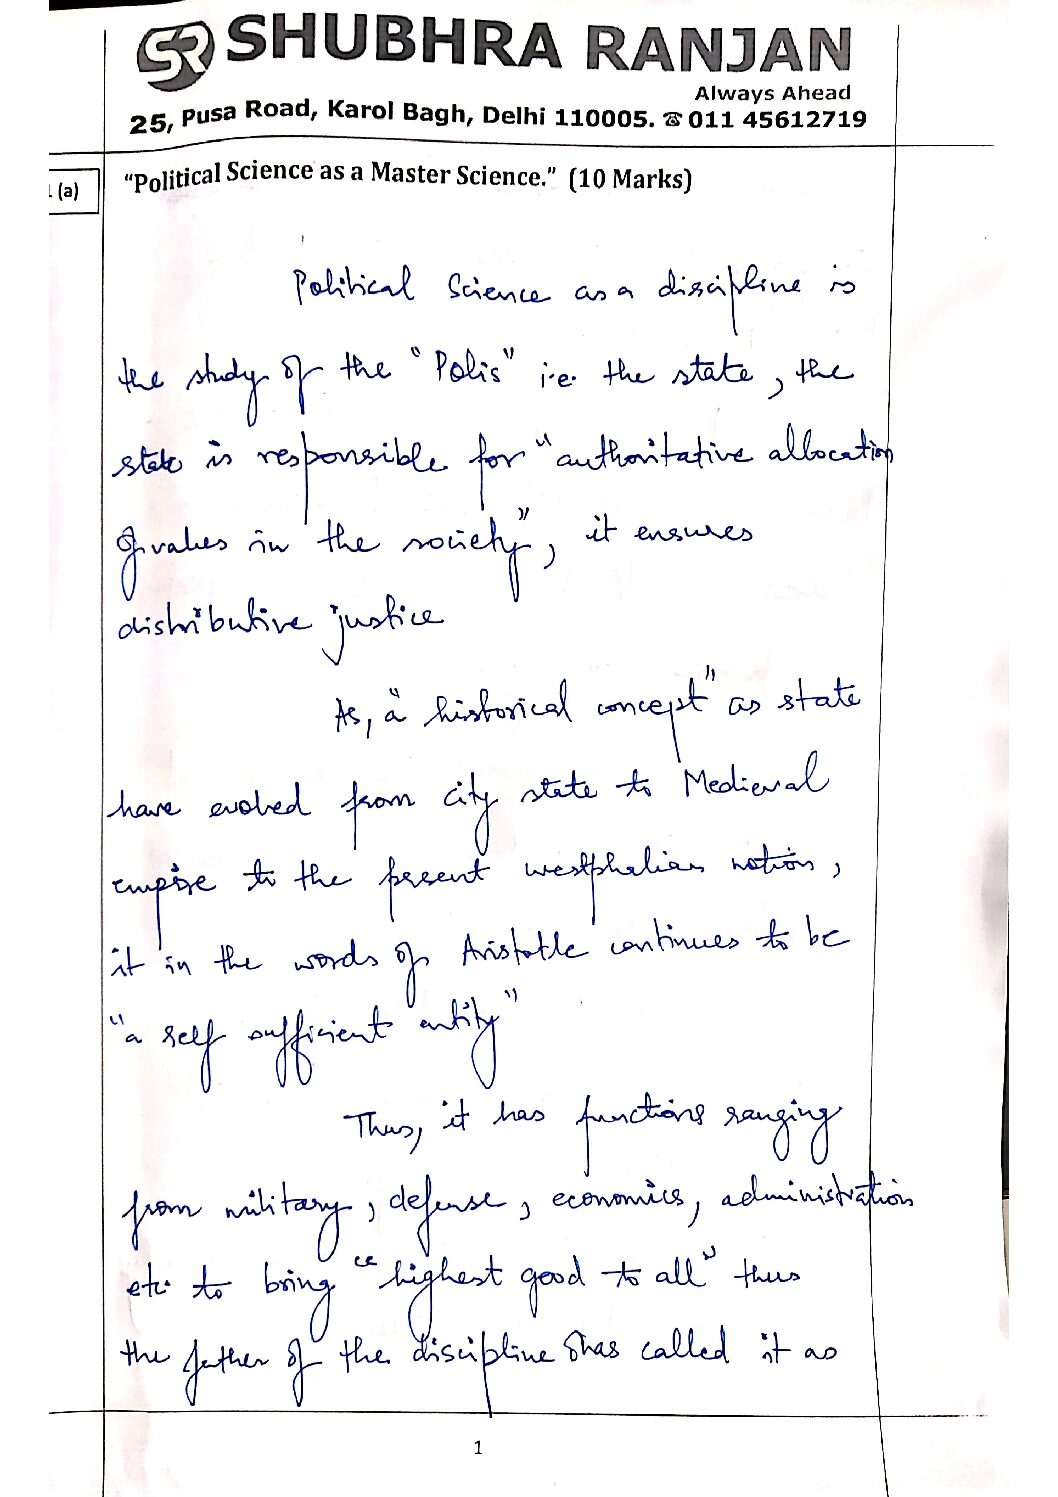 SR SHUBHRA RANJAN
Always Ahead
25, Pusa Road, Karol Bagh, Delhi 110005. ☎ 011 45612719
(a)
“Political Science as a Master Science.” (10 Marks)
Political Science as a discipline is
the study of the "Polis" i.e. the state, the
state is responsible for "authoritative allocation
of values in the society", it ensures
distributive justice
As, a "historical concept" as state
have evolved from city state to Medieval
empire to the present westphalian notion,
it in the words of Aristotle continues to be
"a self sufficient entity"
Thus, it has functions ranging
from military, defense, economics, administration
etc. to bring "highest good to all" thus
the father of the discipline has called it as
1